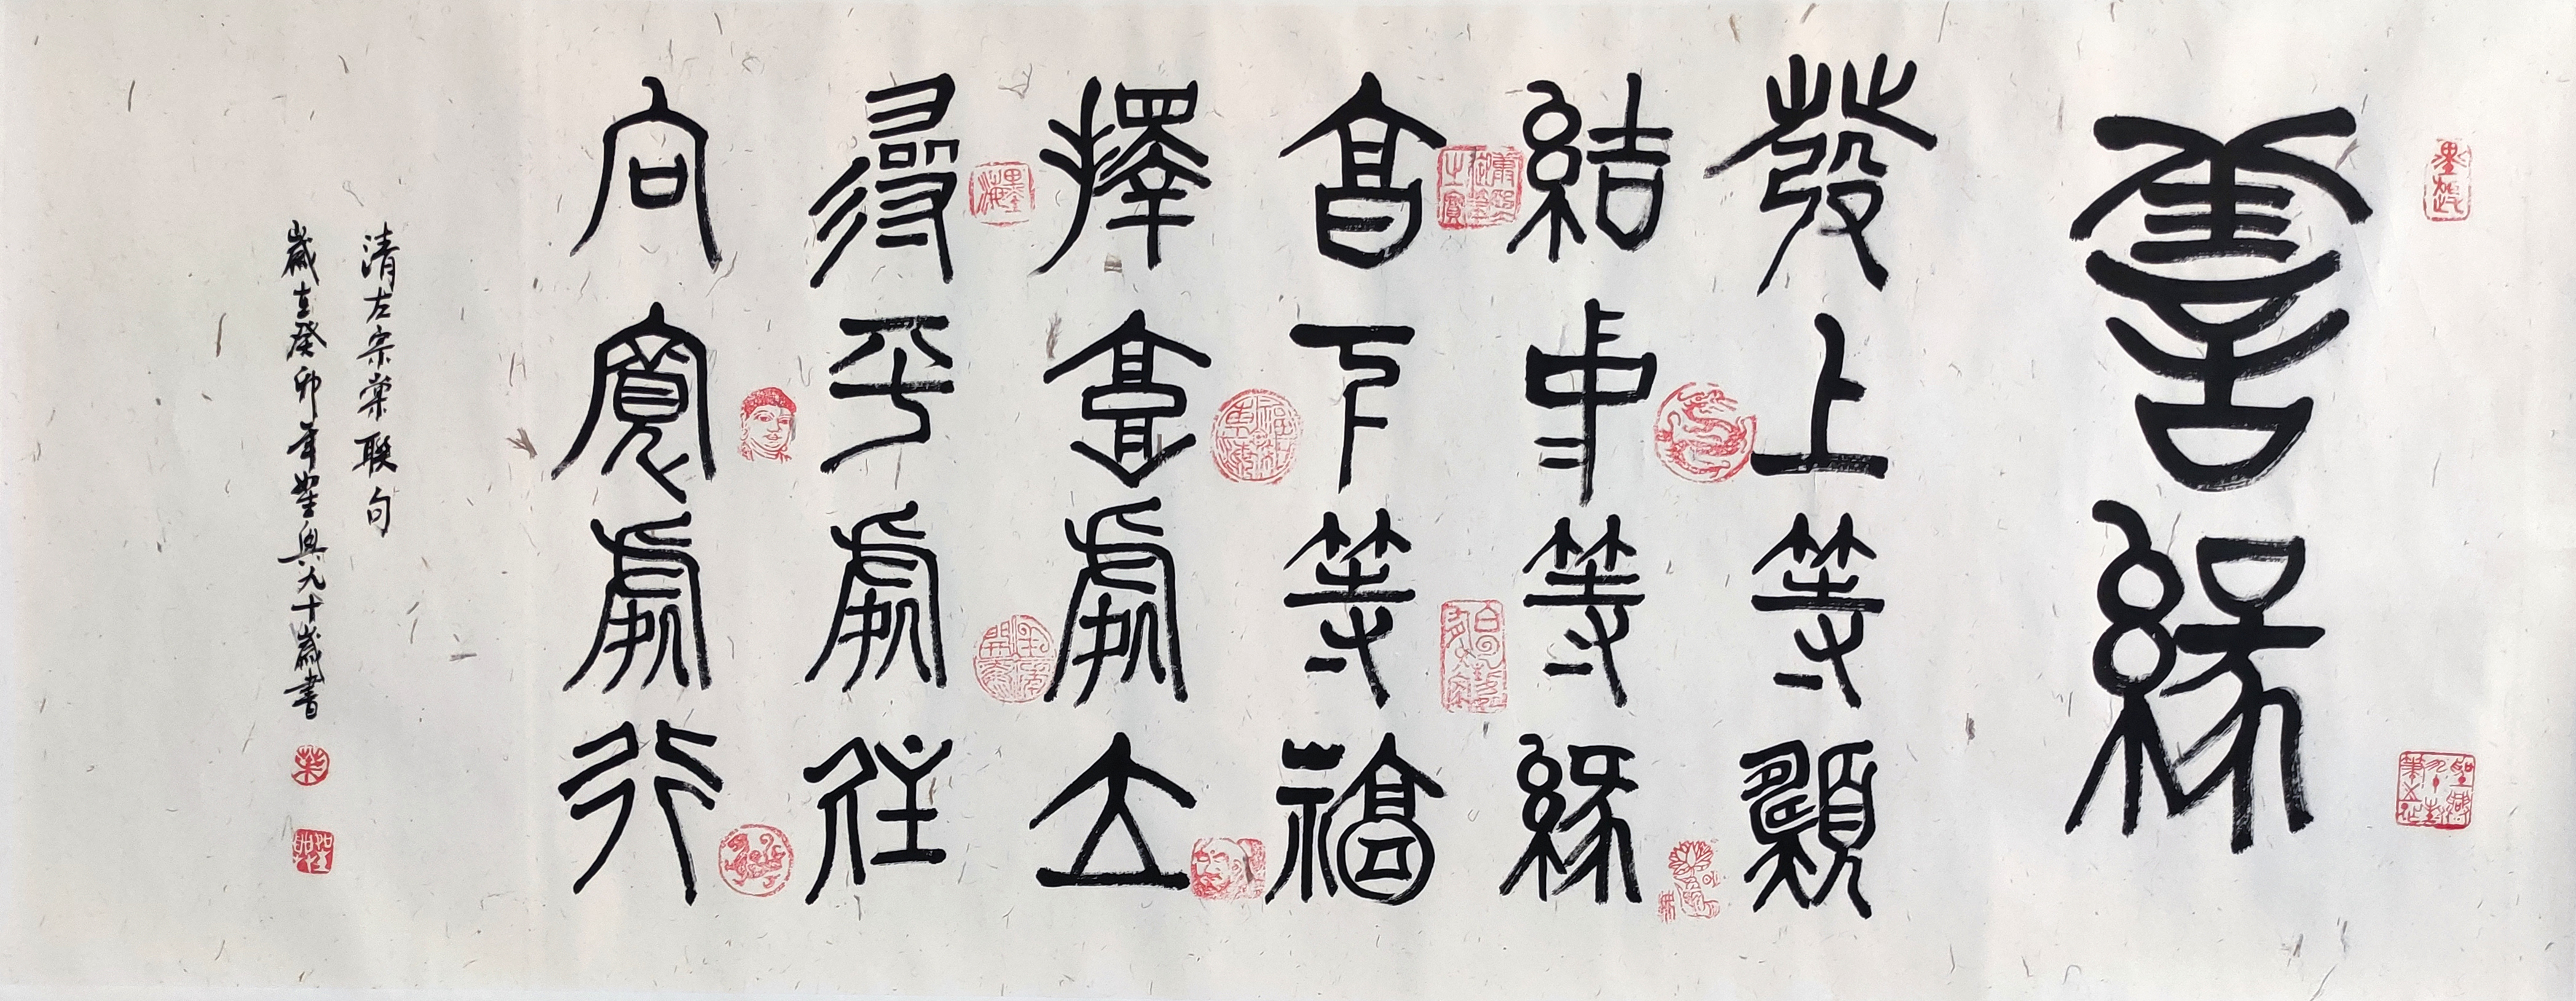 善緣
發上等願
結中等緣
享下等福
擇高處立
尋平處住
向寬處行
清左宗棠聯句
歲在癸卯年九十歲書
墨海